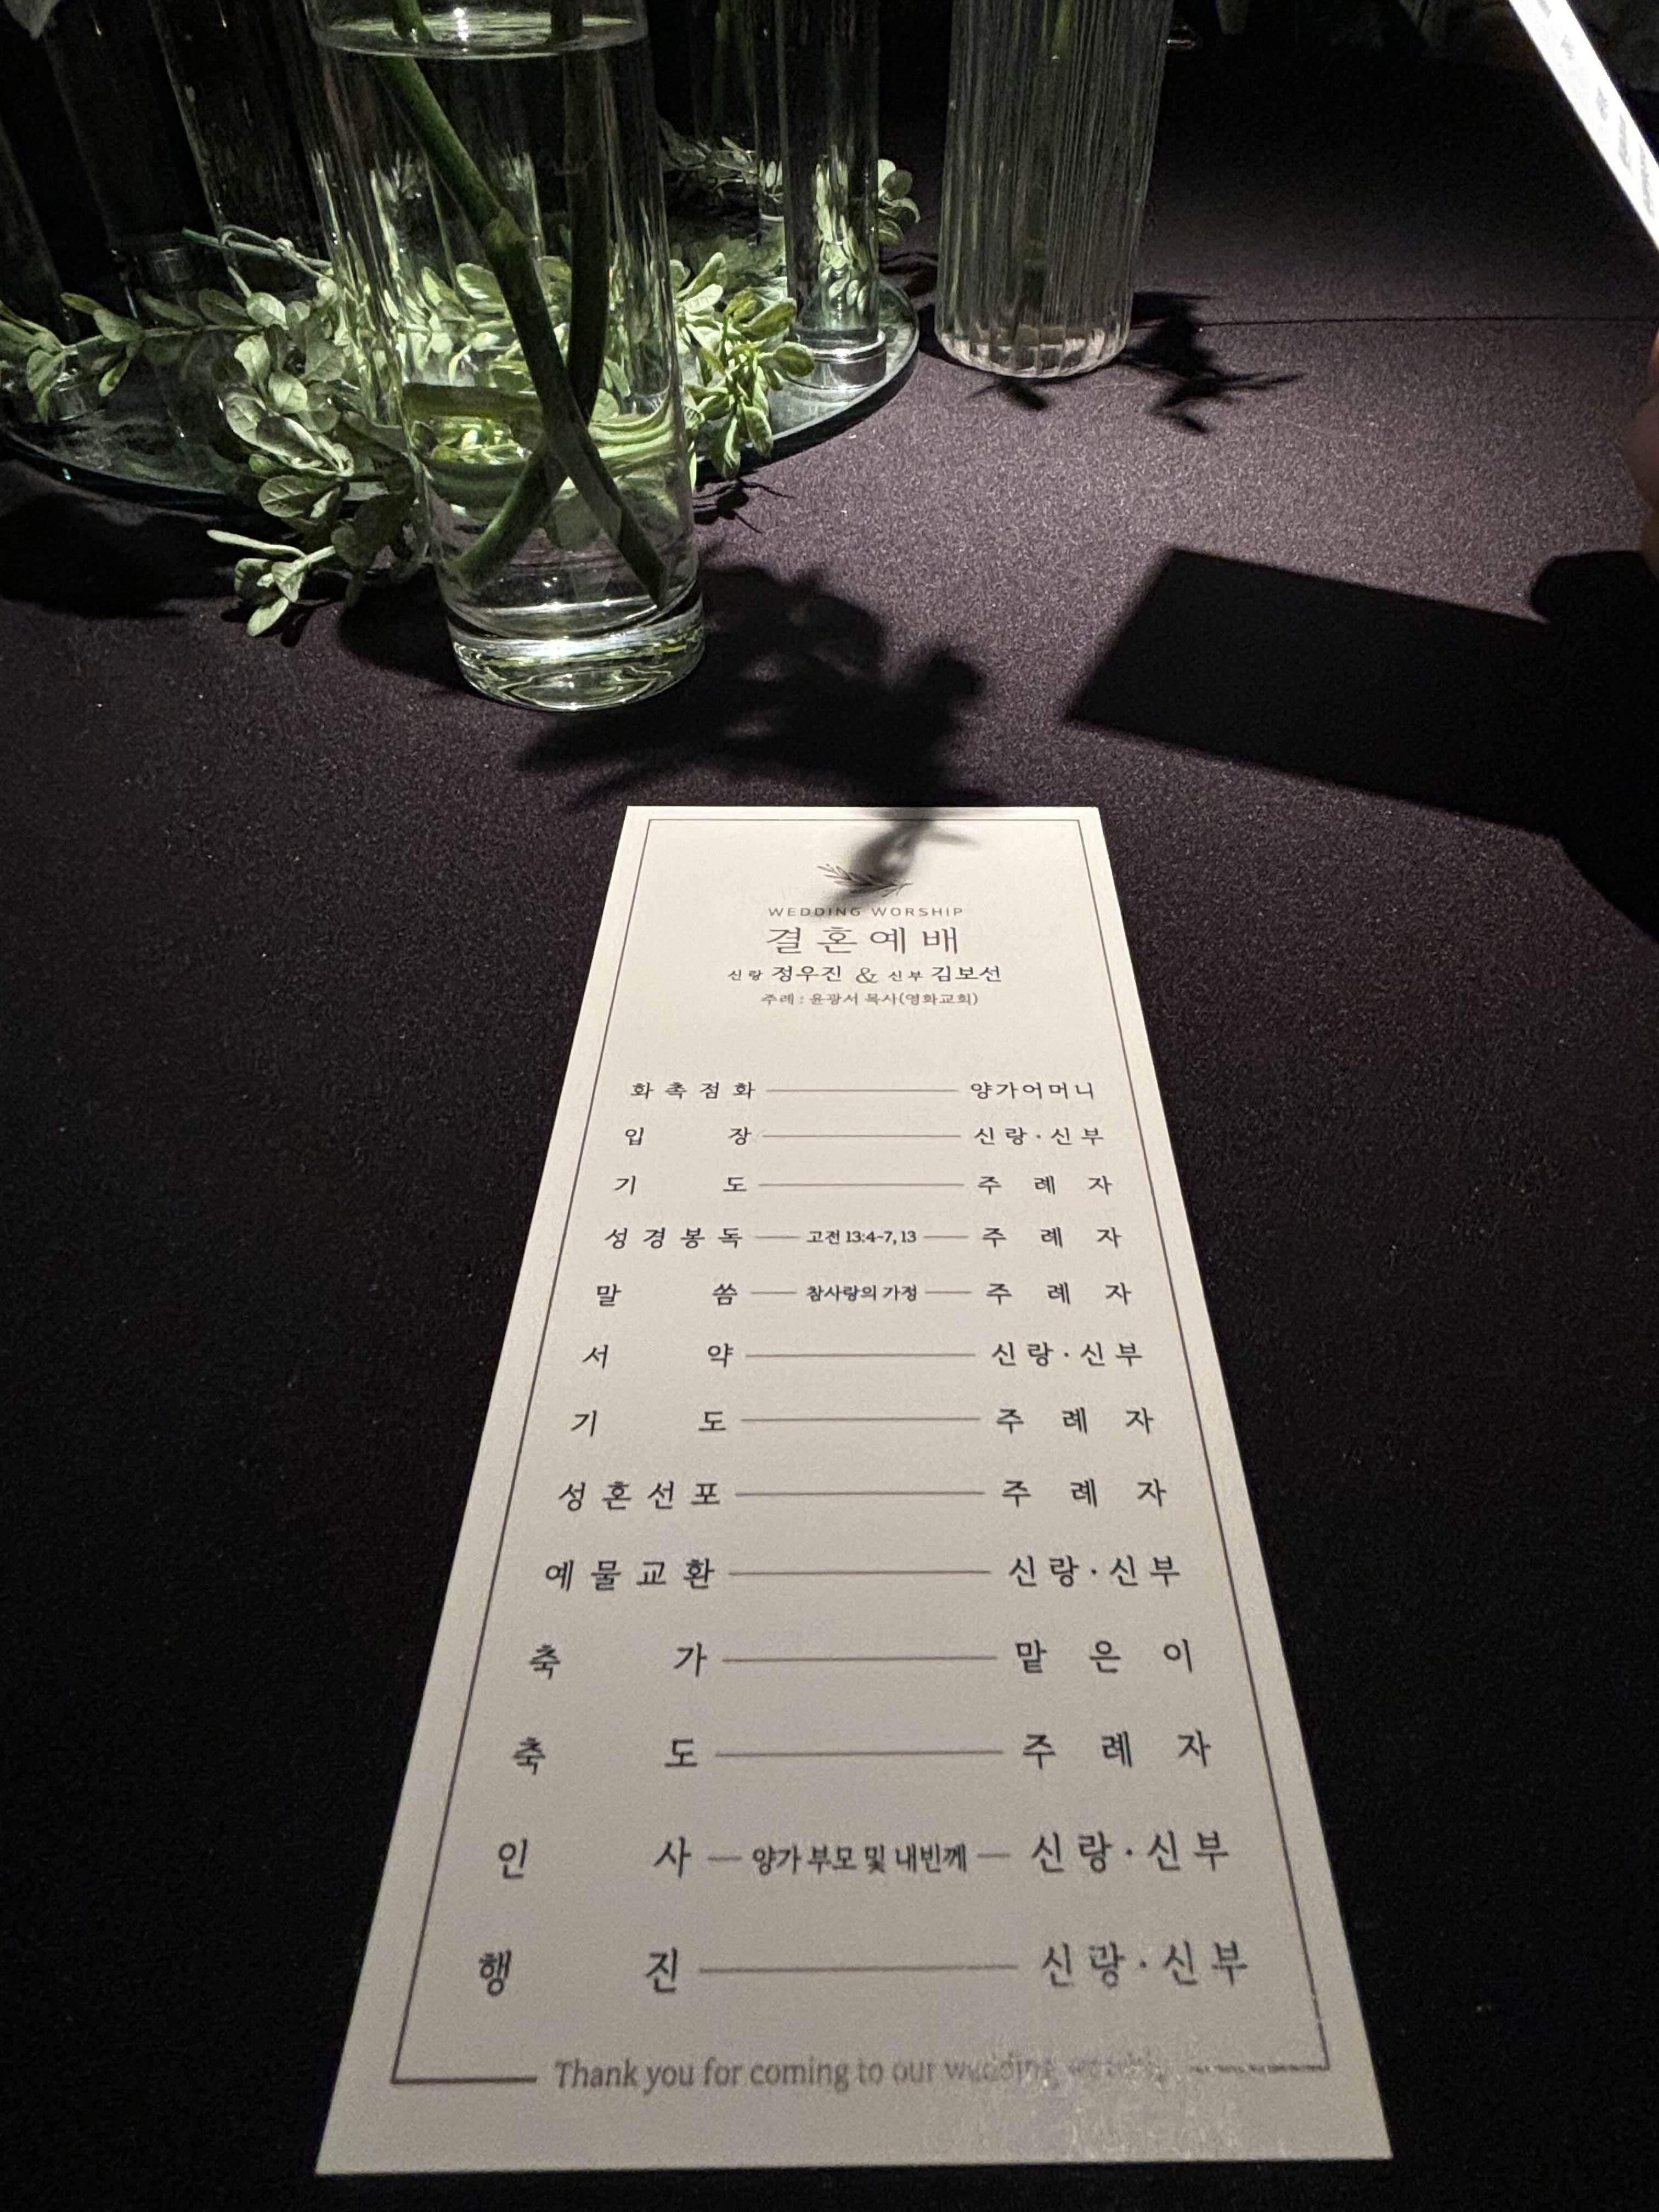 WEDDING WORSHIP
결혼예배
신랑 정우진 & 신부 김보선
주례 : 윤광서 목사(영화교회)
화촉점화 양가어머니
입장 신랑·신부
기도 주례자
성경봉독 고전 13:4~7, 13 주례자
말씀 참사랑의 가정 주례자
서약 신랑·신부
기도 주례자
성혼선포 주례자
예물교환 신랑·신부
축가 맡은이
축도 주례자
인사 양가 부모 및 내빈께 신랑·신부
행진 신랑·신부
Thank you for coming to our wedding